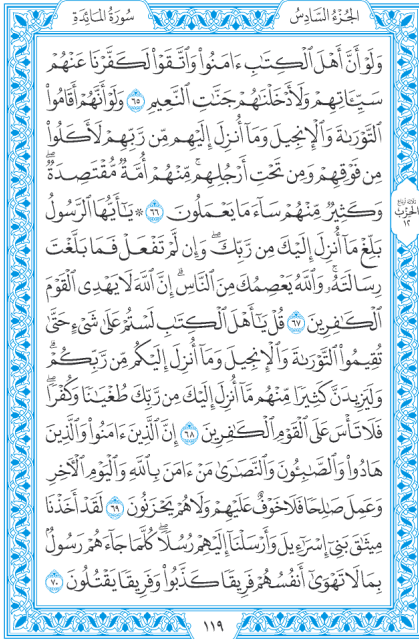 الجُزْءُ السَّادِسُ
سُورَةُ المَائِدَةِ
وَلَوۡ أَنَّ أَهۡلَ ٱلۡكِتَٰبِ ءَامَنُواْ وَٱتَّقَوۡاْ لَكَفَّرۡنَا عَنۡهُمۡ
سَيِّـَٔاتِهِمۡ وَلَأَدۡخَلۡنَٰهُمۡ جَنَّٰتِ ٱلنَّعِيمِ ٦٥ وَلَوۡ أَنَّهُمۡ أَقَامُواْ
ٱلتَّوۡرَىٰةَ وَٱلۡإِنجِيلَ وَمَآ أُنزِلَ إِلَيۡهِم مِّن رَّبِّهِمۡ لَأَكَلُواْ
مِن فَوۡقِهِمۡ وَمِن تَحۡتِ أَرۡجُلِهِمۚ مِّنۡهُمۡ أُمَّةٞ مُّقۡتَصِدَةٞۖ
وَكَثِيرٞ مِّنۡهُمۡ سَآءَ مَا يَعۡمَلُونَ ٦٦ ۞ يَٰٓأَيُّهَا ٱلرَّسُولُ
بَلِّغۡ مَآ أُنزِلَ إِلَيۡكَ مِن رَّبِّكَۖ وَإِن لَّمۡ تَفۡعَلۡ فَمَا بَلَّغۡتَ
رِسَالَتَهُۥۚ وَٱللَّهُ يَعۡصِمُكَ مِنَ ٱلنَّاسِۗ إِنَّ ٱللَّهَ لَا يَهۡدِي ٱلۡقَوۡمَ
ٱلۡكَٰفِرِينَ ٦٧ قُلۡ يَٰٓأَهۡلَ ٱلۡكِتَٰبِ لَسۡتُمۡ عَلَىٰ شَيۡءٍ حَتَّىٰ
تُقِيمُواْ ٱلتَّوۡرَىٰةَ وَٱلۡإِنجِيلَ وَمَآ أُنزِلَ إِلَيۡكُم مِّن رَّبِّكُمۡۗ
وَلَيَزِيدَنَّ كَثِيرٗا مِّنۡهُم مَّآ أُنزِلَ إِلَيۡكَ مِن رَّبِّكَ طُغۡيَٰنٗا وَكُفۡرٗاۖ
فَلَا تَأۡسَ عَلَى ٱلۡقَوۡمِ ٱلۡكَٰفِرِينَ ٦٨ إِنَّ ٱلَّذِينَ ءَامَنُواْ وَٱلَّذِينَ
هَادُواْ وَٱلصَّٰبِـُٔونَ وَٱلنَّصَٰرَىٰ مَنۡ ءَامَنَ بِٱللَّهِ وَٱلۡيَوۡمِ ٱلۡأٓخِرِ
وَعَمِلَ صَٰلِحٗا فَلَا خَوۡفٌ عَلَيۡهِمۡ وَلَا هُمۡ يَحۡزَنُونَ ٦٩ لَقَدۡ أَخَذۡنَا
مِيثَٰقَ بَنِيٓ إِسۡرَٰٓءِيلَ وَأَرۡسَلۡنَآ إِلَيۡهِمۡ رُسُلٗاۖ كُلَّمَا جَآءَهُمۡ رَسُولُۢ
بِمَا لَا تَهۡوَىٰٓ أَنفُسُهُمۡ فَرِيقٗا كَذَّبُواْ وَفَرِيقٗا يَقۡتُلُونَ ٧٠
ثلاثة أرباع
الحزب
١٢
١١٩